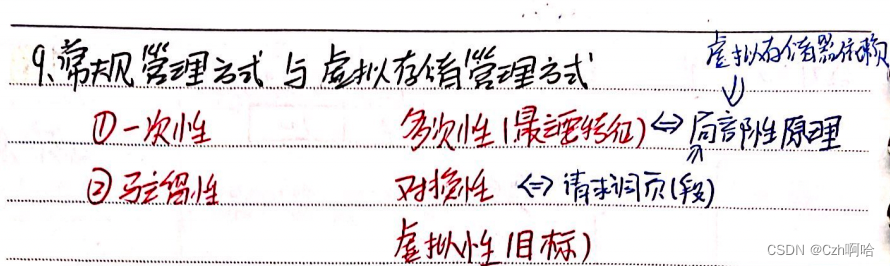 虚拟存储器依赖
9、常规管理方式 与 虚拟存储管理方式
①一次性 多次性(最主要特征) ⇔ 局部性原理
②驻留性 对换性 ⇔ 请求调页(段)
虚拟性(目标)
CSDN @Czh啊哈